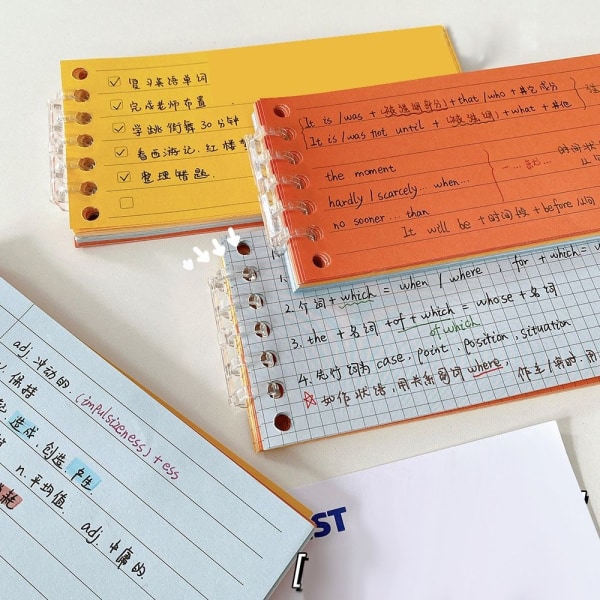 复习英语单词
完成老师布置
学跳街舞30分钟
看西游记、红楼
整理错题.
It is /was + (被强调部分) + that /who + 其它成分
It is /was not until + (被强调) + what + 其他
the moment
hardly / scarcely... when...
no sooner ... than
时间状
It will be + 时间段 + before 从句
2. 介词 + which = when / where , for + which = w
3. the + 名词 + of + which = whose + 名词
of which
4. 先行词为 case, point, position, situation
☆ 如作状语, 用关系副词 where, 作主
adj. 冲动的 (impulsizeness) + ess
保持
造成, 创造, 产生.
n. 平均值. adj. 中庸的.
耗
ST
[